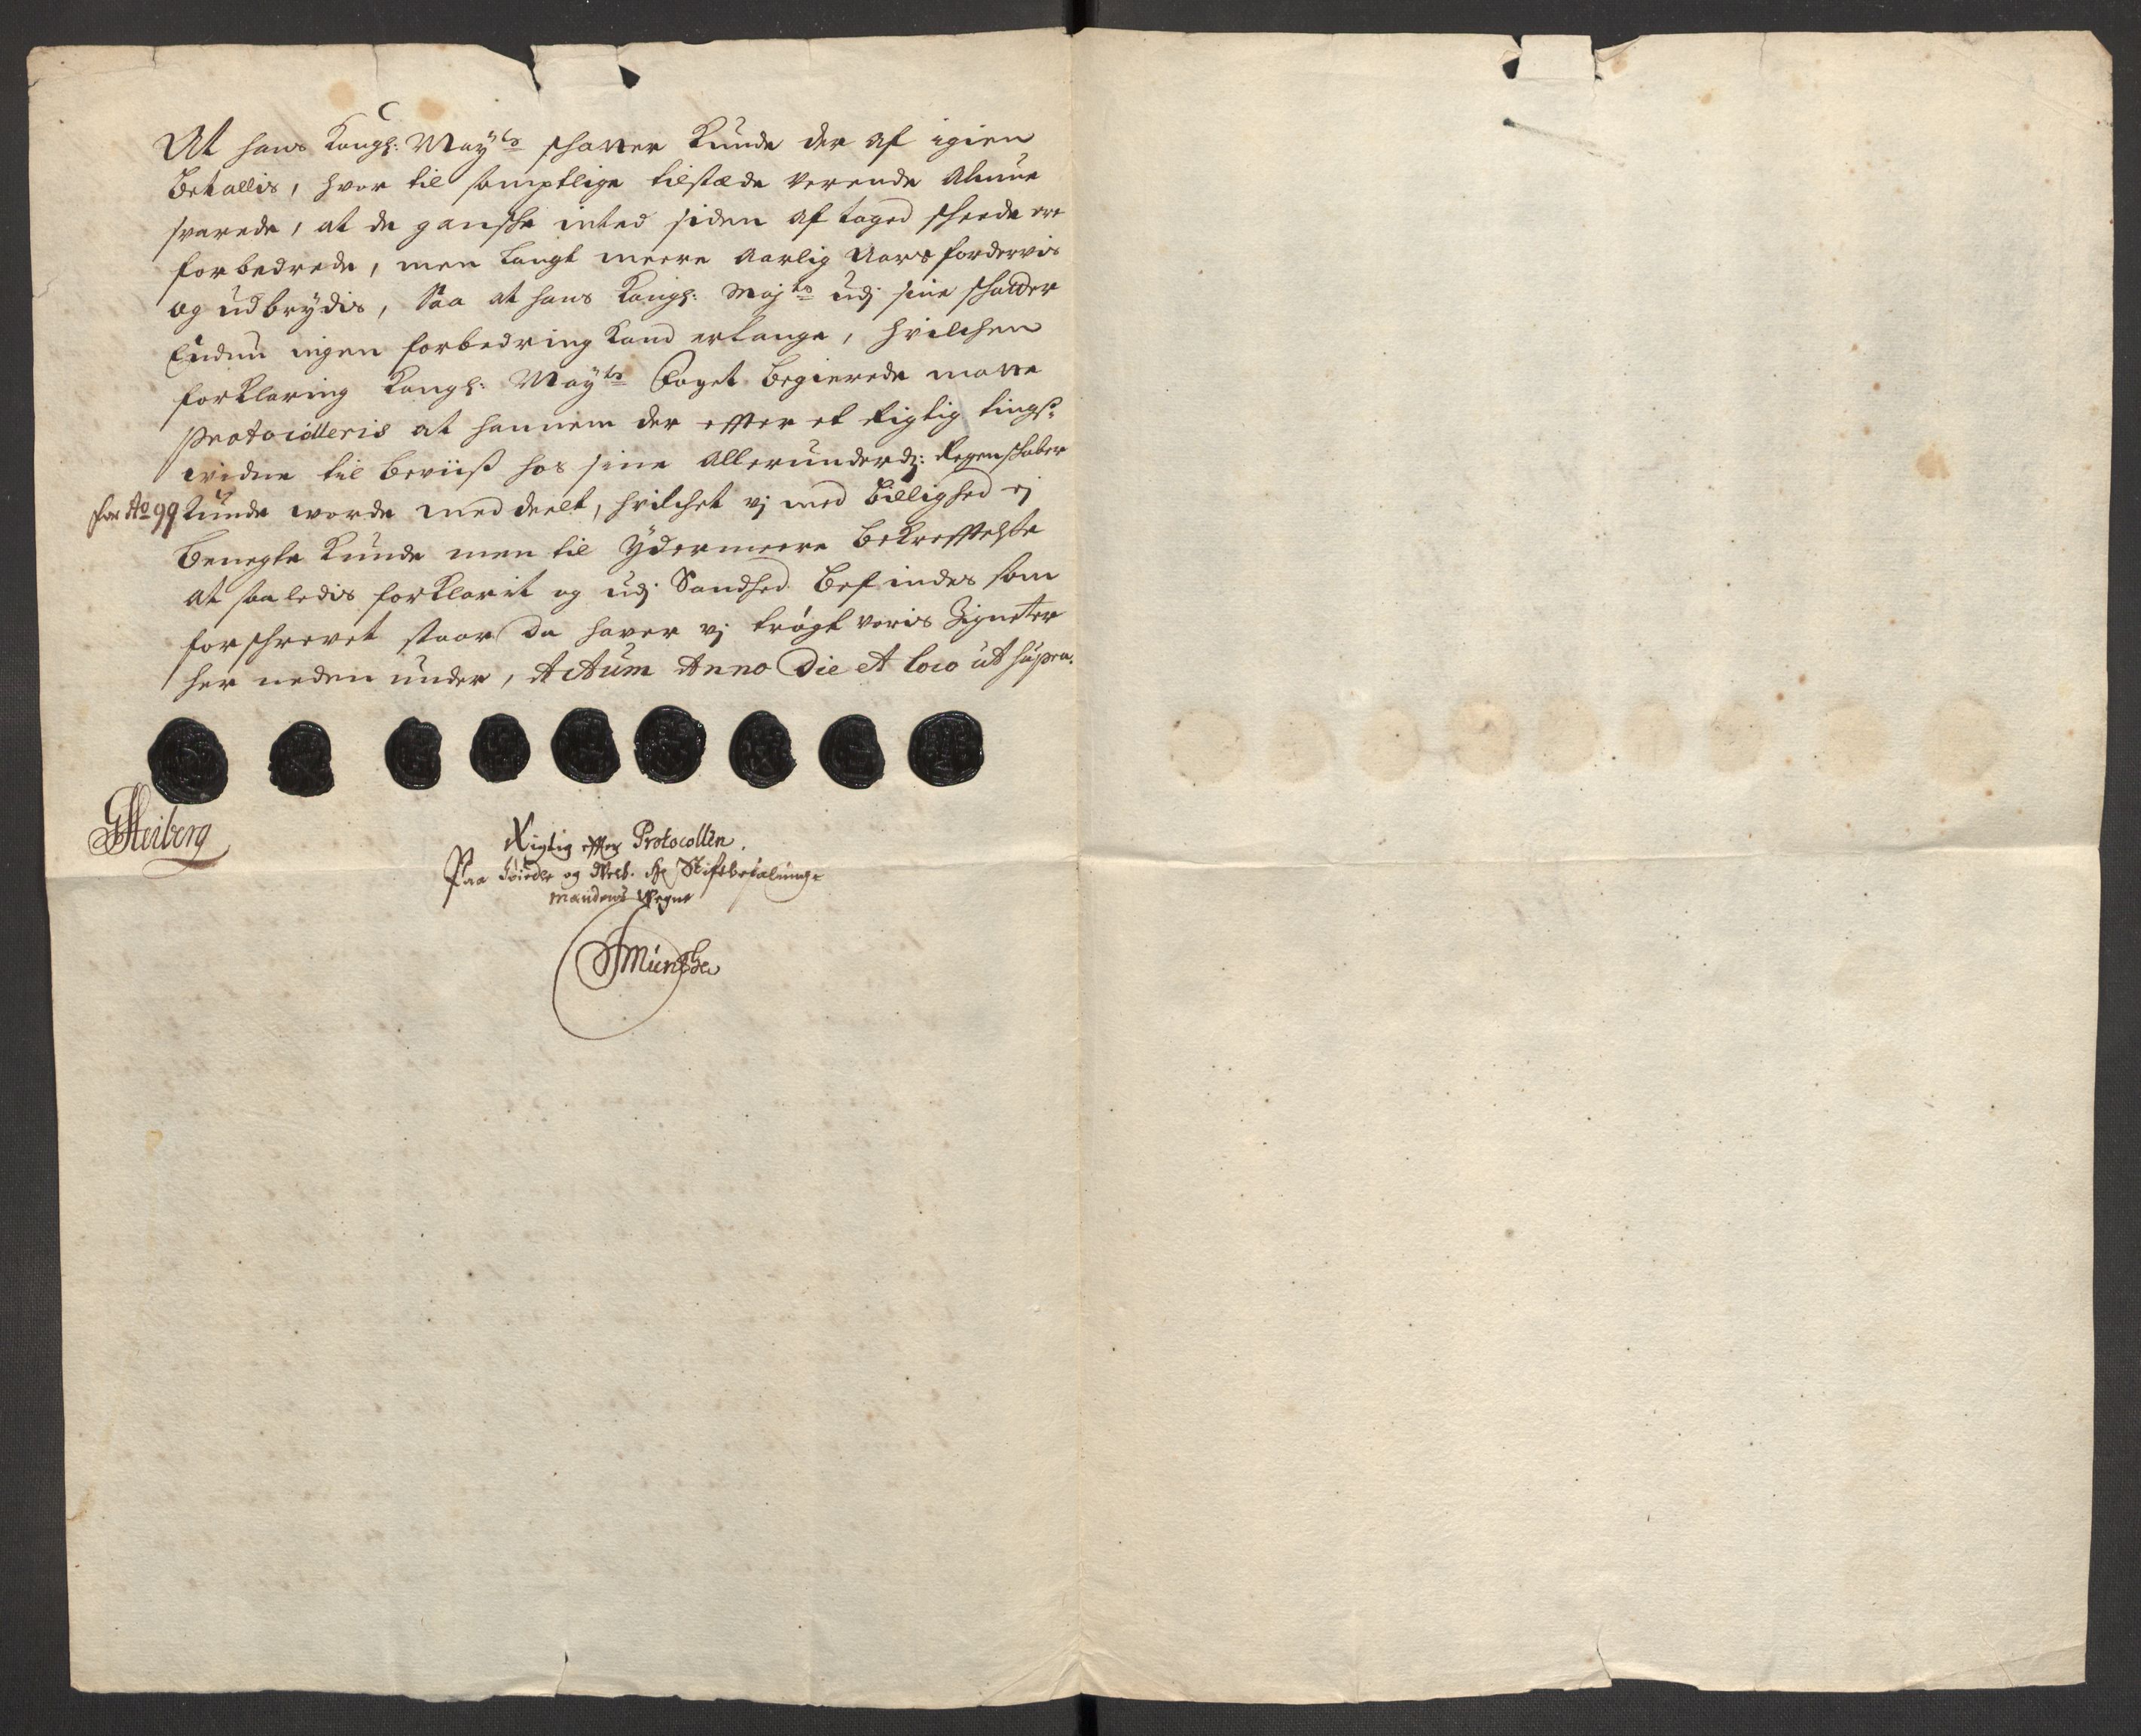 At hans Kongl: May<sup>ts</sup> schatter kunde der af igien
betallis, hvor til samptlige tilstæde verende Almue
svarede, at de gansche inted siden af taged scheede ere
forbedrede, men langt meere Aarlig Aars fordervis
og udbrydis, Saa at hans Kongl: Maj<sup>ts</sup> udj sine schatter
Endnu ingen forbedring kand erlange, hvilchen
forklaring Kongl: May<sup>ts</sup> Foget begierede motte
Protocolleris at hannem der effter et Rigtig tings-
widne til beviiß hos sine Allerunderd: Regenschaber
for Ao 99 kunde worde meddeelt, hvilchet vj med billighed ej
benegte kunde men til ydermeere bekrefftelse
at saaledis forklarit og udj Sandhed befindes som
forschrevet staar Da haver vj trögt voris Zigneter
her neden under, Actum Anno Die et loco ut supra.
GHeiberg
Rigtig effter Protocollen.
Paa og Hr Stiftsbefalings-
mandens Vegne
Munthe